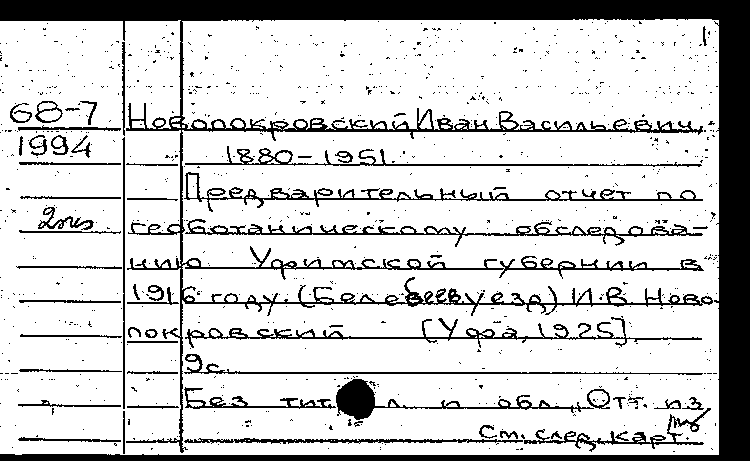 1
68-7 Новопокровский, Иван Васильевич,
1994 1880-1951.
Предварительный отчет по
2экз геоботаническому обследова-
нию Уфимской губернии в
1916 году. (Белебеев уезд) И.В. Ново-
покровский. [Уфа, 1925].
9с.
Без тит. л. и обл. „Отт. из
См. след. карт.